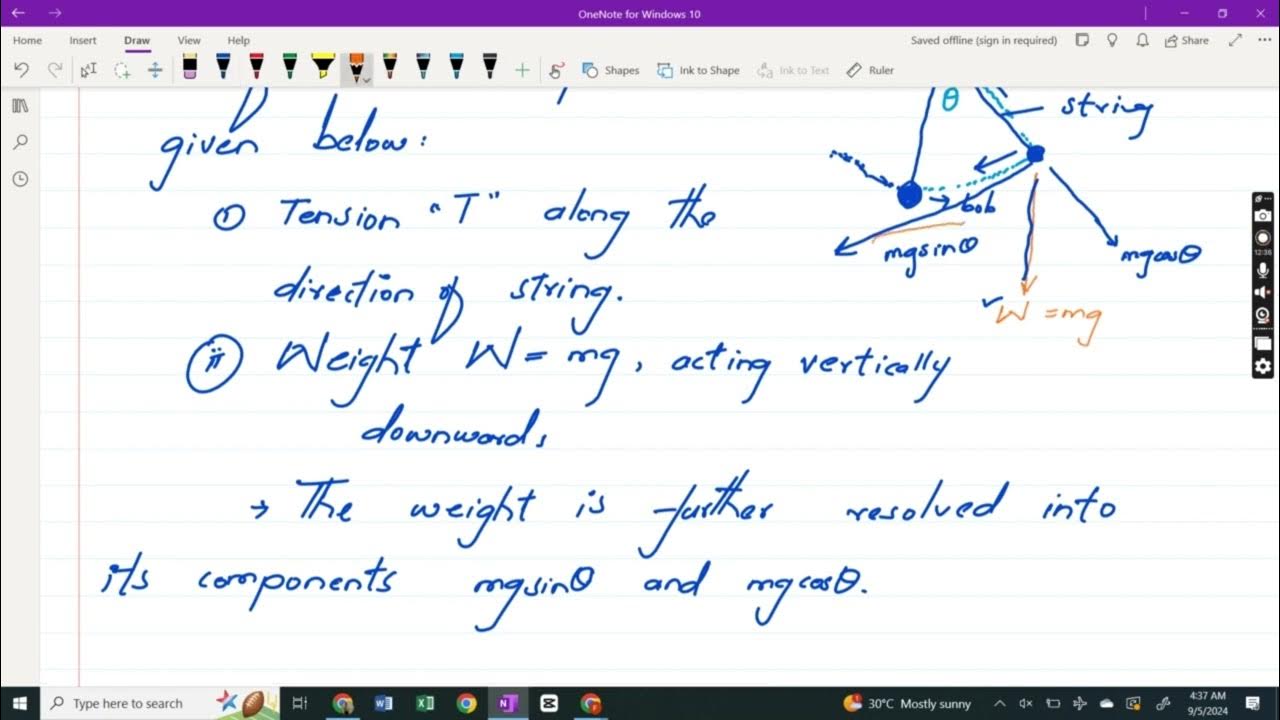 OneNote for Windows 10
Home Insert Draw View Help
Saved offline (sign in required)
Share
Shapes
Ink to Shape
Ink to Text
Ruler
θ
string
given below:
bob
(i) Tension "T" along the
mgsinθ
mgcosθ
direction of string.
W = mg
(ii) Weight W = mg, acting vertically
downwards
→ The weight is further resolved into
its components mgsinθ and mgcosθ.
12:36
Type here to search
30°C Mostly sunny
4:37 AM
9/5/2024